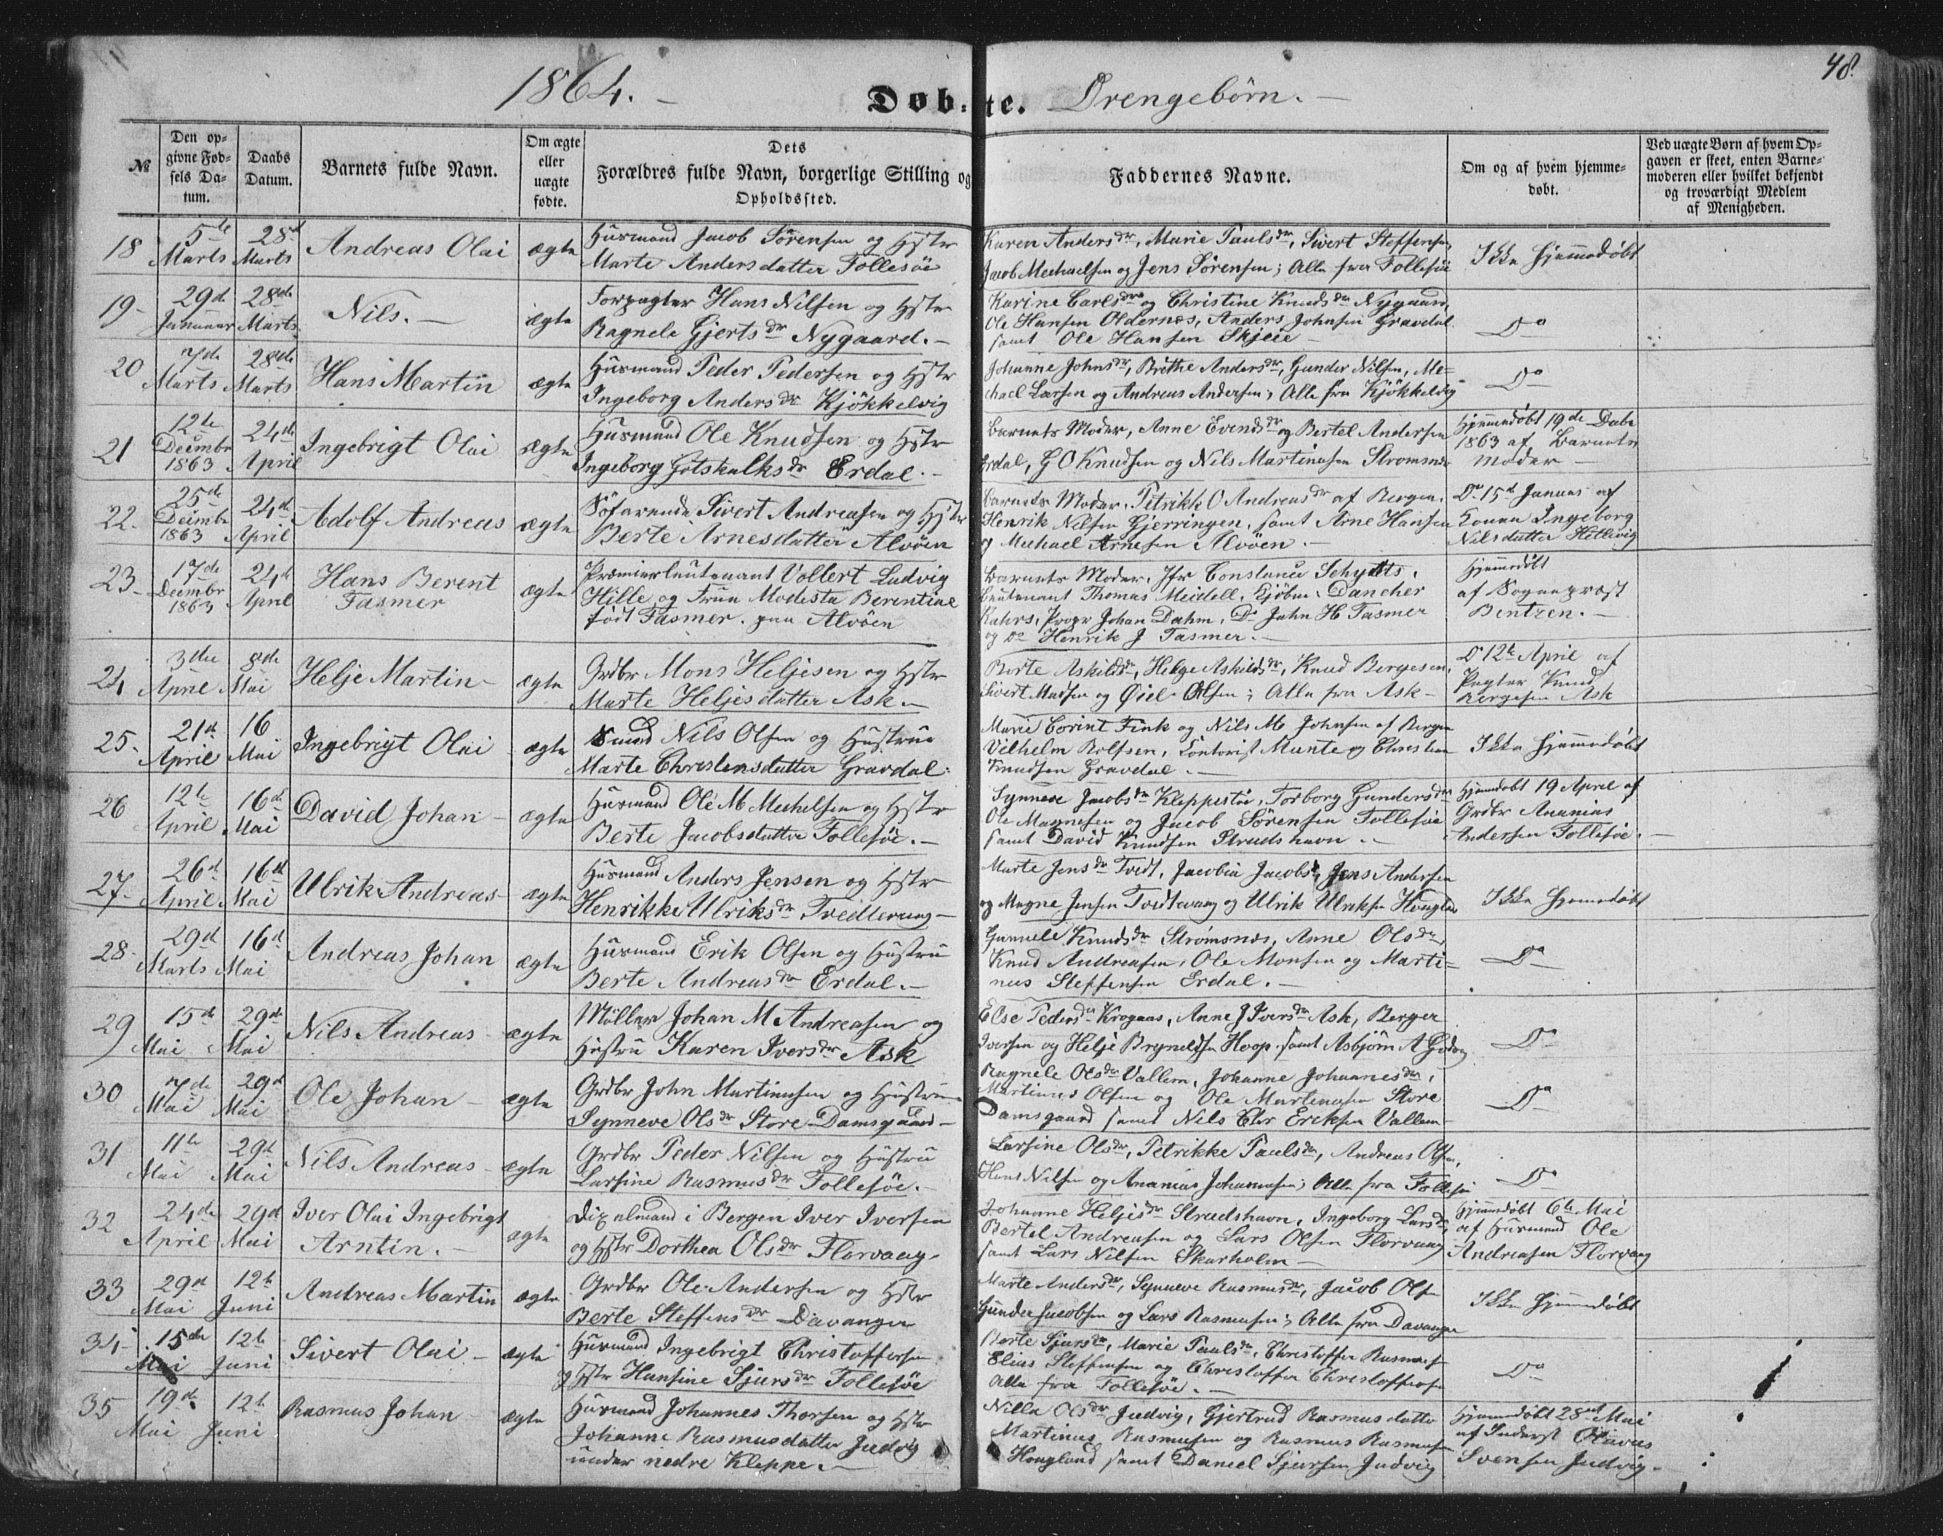 48.
1864. –
Dob- te. Drengebörn. –
№
Den op-
givne Fød-
sels Da-
tum.
Daabs
Datum.
Barnets fulde Navn.
Om ægte
eller
uægte
fødte.
Dets
Forældres fulde Navn, borgerlige Stilling og
Opholdssted.
Faddernes Navne.
Om og af hvem hjemme-
døbt.
Ved uægte Børn af hvem Op-
gaven er skeet, enten Barne-
moderen eller hvilket bekjendt
og troværdigt Medlem
af Menigheden.
18 5te Marts 28de Marts Andreas Olai ægte
Husmand Jacob Sørensen og Hstr
Marte Andersdatter Follesöe
Karen Andersdr, Marie Paulsdr, Sivert Steffensen,
Jacob Mechaelsen og Jens Sørensen; Alle fra Follesöe
Ikke Hjemmedöbt
19- 29d Januar 28de Marts Nils. – ægte
Forpagter Hans Nilsen og Hstr
Ragnele Gjertsdr Nygaard. –
Karine Carlsdr og Christine Knudsdr Nygaard,
Ole Hansen Oldernes, Anders Johnsen Gravdal
samt Ole Hansen Skjeie
Do
20 7de Marts 28de Marts Hans Martin ægte
Husmand Peder Pedersen og Hstr
Ingeborg Andersdr Kjökkelvig
Johanne Johnsdr, Brithe Andersdr, Gunder Nilsen, Me-
chael Larsen og Andreas Andersen; Alle fra Kjökkelvig
Do
21 12te Decembr 1863 24de April Ingebrigt Olai ægte
Husmand Ole Knudsen og Hstr
Ingeborg Gotskalksdr Erdal. –
Barnets Moder, Anne Evendsdr og Bertel Andersen
Erdal, G O Knudsen og Nils Martinusen Stromsnes
Hjemmedöbt 19de Decbr
1863 af Barnets
Moder –
22. 25de Decembr 1863 24d April Adolf Andreas ægte
Söfarende Sivert Andreasen og Hstr
Berte Arnesdatter Alvöen
Barnets Moder, Petrikk O Andreasdr af Bergen,
Henrik Nilsen Gjerringen, samt Arne Hansen
og Mechael Arnesen Alvöen. –
Do 15d Januar af
Konen Ingeborg
Nilsdatter Hetlevig
23. 17de Decembr 1863 24d April Hans Berent
Fasmer ægte
Premierleutenant Vollert Ludvig
Hille og Frue Modesta Berentine
født Fasmer. paa Alvöen
Barnets Moder, Jfr Constance Schydts,
Leutenant Thomas Meidell, Kjöbm. Dancher
Kahrs, Propr Johan Dahm, Do John H Fasmer
og Do Henrik J Fasmer. –
Hjemmedöbt
af Sogneprest
Bentzen. –
24 3die April 8de Mai Helje Martin – ægte
Grdbr Mons Heljesen og Hstr
Marte Heljesdatter Ask –
Berte Askildsdr, Helge Askildsdr, Knud Bergesen,
Sivert Madsen og Öiel Olsen; Alle fra Ask –
Do 12te April af
Pagter Knud
Bergesen Ask
25. 21d April 16 Mai Ingebrigt Olai ægte
Nils Olsen og Hustrue
Marte Christensdatter Gravdal.
Marie Corint Fink og Nils M. Johnsen af Bergen
Vilhelm Rolfsen, Contorist Munte og Christian
Knudsen Gravdal. –
Ikke Hjemmedöbt
26 12te April 16de Mai David Johan – ægte
Husmand Ole M Mechelsen og Hstr
Berte Jacobsdatter Follesöe. –
Synneve Jacobsdr Kleppestöe, Torborg Gundersdr
Ole Magnesen og Jacob Sörensen Follesöe
samt David Knudsen Strudshavn. –
Hjemmedöbt 19 April af
Grdbr Ananias
Andersen Follesöe. –
27- 26d April 16d Mai Ulrik Andreas – ægte
Husmand Anders Jensen og Hstr
Henrikke Ulriksdr Tvedtevaag –
Marte Jensdr Tvedt, Jacobia Jacobsd, Jens Andersen
og Magne Jensen Tvedtevaag og Ulrik Ulriksen
Ikke Hjemmedöbt
28. 29d Marts 16d Mai Andreas Johan ægte
Husmand Erik Olsen og Hustru
Berte Andreasdr Erdal. –
Gunnele Knudsdr Strömsnes, Anne Olsdr,
Knud Andreasen, Ole Monsen og Marti-
nus Steffensen Erdal. –
Do
29 15d Mai 29d Mai Nils Andreas – ægte
Möller Johan M Andreasen og
Hustru Karen Iversdr Ask
Else Pedersdr Krogaas, Anne J Iversdr Ask, Berger
Iversen og Helje Brynelsen Hoop, samt Asbjörn A
Do
30 7de Mai 29d Mai Ole Johan – ægte
Grdbr John Martinusen og Hustrue
Synneve Olsdr Store Damsgaard –
Ragnele Olsdr Vallem, Johanne Johannesdr,
Martinus Olsen og Ole Martinusen Store
Damsgaard samt Nils Chr Eriksen Vallem –
Do
31 11te Mai 29d Mai Nils Andreas – ægte
Grdbr Peder Nilsen og Hustru
Larsine Rasmusdr Follesöe. –
Larsine Olsdr, Petrikke Paulsdr, Andreas Olsen,
Hans Nilsen og Ananias Johannesen; Alle fra Follesöe
Do
32 24de April 29d Mai Iver Olai Ingebrigt
Arntin. – ægte
i Bergen Iver Iversen
og Hstr Dorthea Olsdr Florvaag –
Johanne Heljesdr Strudshavn, Ingeborg Larsdr,
Bertel Andreasen og Lars Olsen Florvaag
samt Lars Nilsen Skarholm –
Hjemmedöbt 6te Mai
af Husmand Ole
Andreasen Florvaag
33 29d Mai 12te Juni Andreas Martin ægte
Grdbr Ole Andersen og Hstr
Berte Steffensdr Davanger
Marte Andersdr, Synneve Rasmusdr, Jacob Olsen
Gunder Jacobsen og Lars Rasmusen; Alle fra Davanger
Ikke Hjemmedöbt
34 15de Mai 12te Juni Sivert Olai – ægte
Husmand Ingebrigt Christoffersen
og Hstr Hansine Sjursdr Follesöe
Berte Sjursdr, Marie Paulsdr, Christoffer Rasmusen
Elias Steffensen og Christoffer Christoffersen
Alle fra Follesöe. –
Do
35 19de Mai 12te Juni Rasmus Johan – ægte
Husmand Johannes Thorsen og Hstr
Johanne Rasmusdatter Judvig
under nedre Kleppe. –
Nilla Olsdr Judvig, Gjertrud Rasmusdatter
Martinus Rasmusen og Rasmus Rasmusen
Hougland samt Daneel Sjursen Judvig
Hjemmedöbt 28de Mai
af Inderst Olaves
Svensen Judvig. –